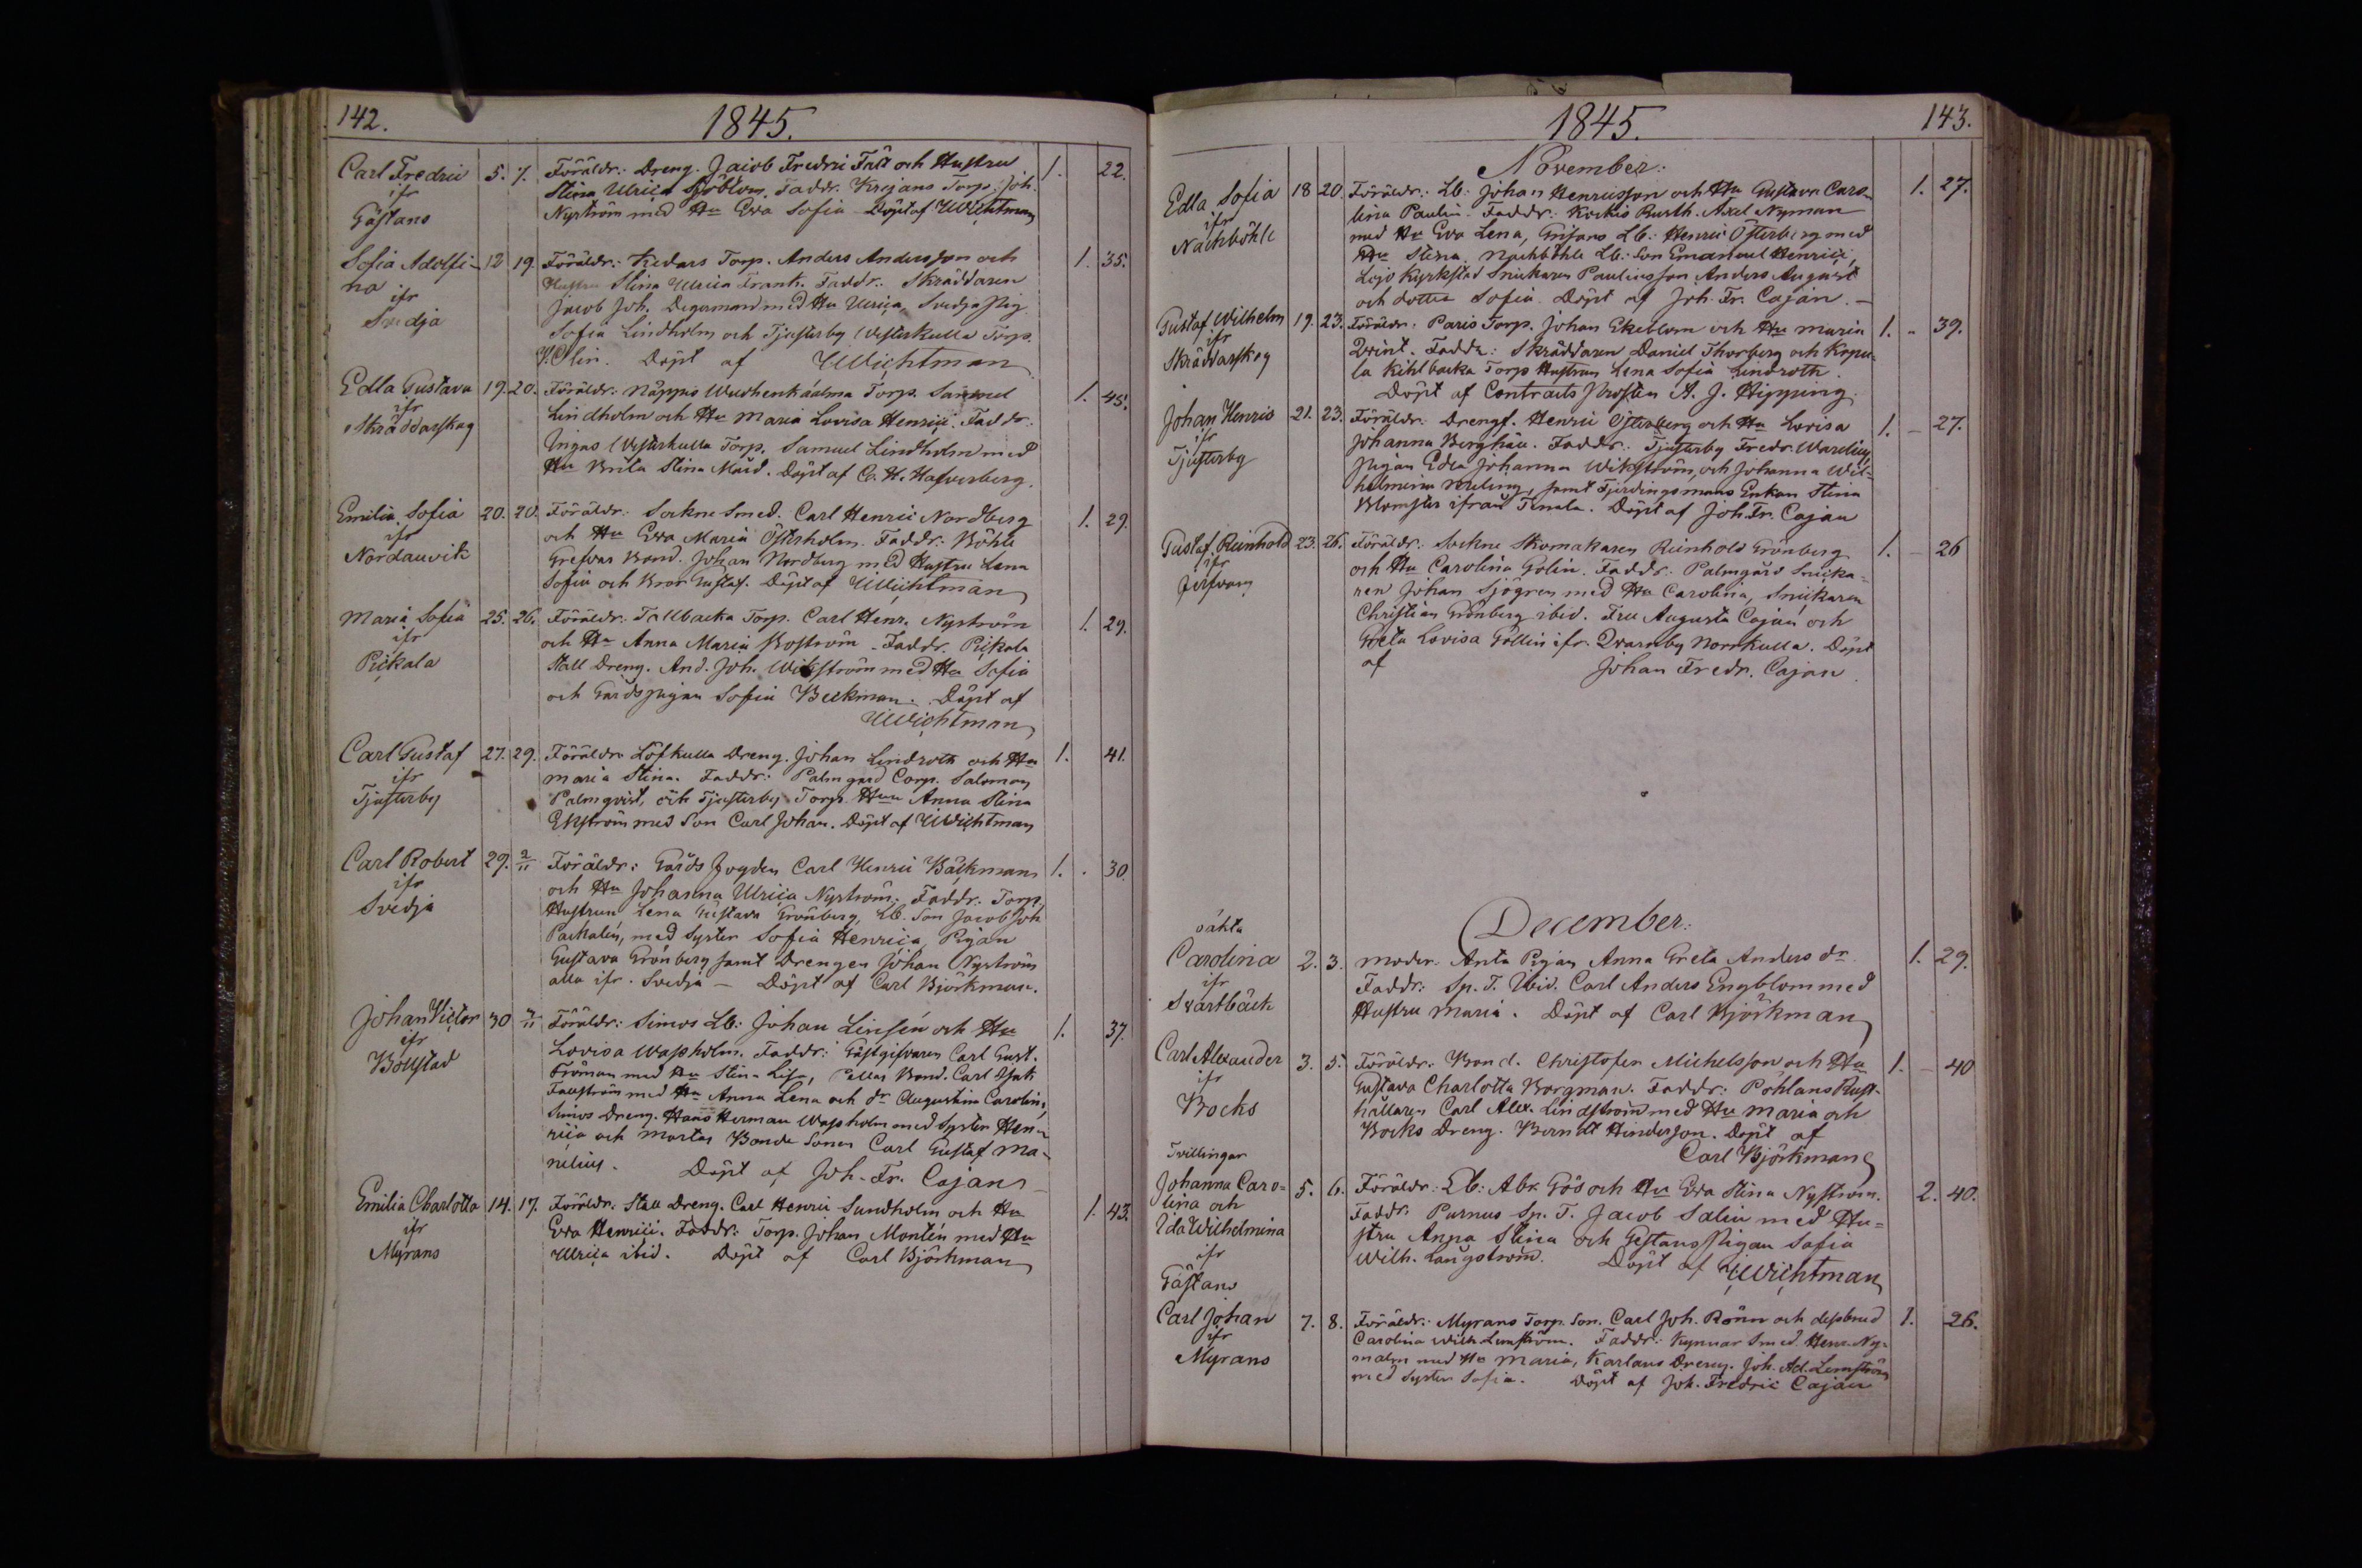 142.
1845.
Carl Fredric
ifr
Gästans
5. 7. Föräldr: Dreng. Jacob Fredric Fält och Hustru 1. 22.
Stina Ulrica Sjöblom. Faddr. Krejans Torp. Joh.
Nyström med Hu Eva Sofia Döpt af UWichtman
Sofia Adolfi-
na
ifr
Svidja
12 19. Föräldr: Kedars Torp. Anders Andersson och 1. 35.
Hustru Stina Ulrica Frank. Faddr: Skräddaren
Jacob Joh. Degermand med Hu Ulrica, Svidja Pig.
Sofia Lindholm och Tjusterby Westerkulla Torp.
Olin. Döpt af UWichtman
Edla Gustava
ifr
Skräddarskog
19. 20. Föräldr: Näppis Torp. Samuel 1. 45.
Lindholm och Hu Maria Lovisa Henric. Faddr.
Ingas Westerkulla Torp. Samuel Lindholm med
Hu Brita Stina Mård. Döpt af C. H. Hafverberg.
Emilia Sofia
ifr
Nordanvik
20. 20. Föräldr: Sockne Smed. Carl Henric Nordberg 1. 29.
och Hu Eva Maria Österholm. Faddr: Böhle
Grefvas Bond. Johan Nordberg med Hustru Lena
Sofia och Bror Gustaf. Döpt af UWichtman
Maria Sofia
ifr
Pickala
25. 26. Föräldr: Tallbacka Torp. Carl Henr. Nyström 1. 29.
och Hu Anna Maria Boström. Faddr. Pickala
Stall Dreng. And. Joh. Wikström med Hu Sofia
och Gårdspigan Sofia Beckman. Döpt af
UWichtman
Carl Gustaf
ifr
Tjusterby
27. 29. Föräldr. Löfkulla Dreng. Johan Lindroth och Hu 1. 41.
Maria Stina. Faddr: Palmgård Corp. Salomon
Palmqvist, och Tjusterby Torp. Hun Anna Stina
Ekström med Son Carl Johan. Döpt af UWichtman
Carl Robert
ifr
Svidja
29. 2/11 Föräldr: Gårds Fogden Carl Henric Bäckman 1. 30.
och Hu Johanna Ulrica Nyström. Faddr. Torp.
Hustrun Lena Gustava Grönberg, Lb. Son Jacob Joh.
Packalén, med Syster Sofia Henrica, Pigan
Gustava Grönberg samt Drengen Johan Nyström
alla ifr. Svidja — Döpt af Carl Björkman.
Johan Victor
ifr
Böllstad
30 /11 Föräldr: Simos Lb: Johan Linsén och Hu 1. 37.
Lovisa Wassholm. Faddr: Gästgifvaren Carl Gust.
Froman med Hu Stina Lisa, Pellas Bond. Carl Isak
med Hu Anna Lena och dr Augustina Carolina,
Simos Dreng. Hans Herman Wassholm med Syster Hen-
rica och Martas Bonde Sonen Carl Gustaf Ma-
nelius. Döpt af Joh. Fr. Cajan
Emilia Charlotta
ifr
Myrans
14. 17. Föräldr: Stall Dreng. Carl Henric Sundholm och Hu 1. 43.
Eva Henrici. Faddr: Torp. Johan Montén med Hu
Ulrica ibid. Döpt af Carl Björkman
1845.
143.
November:
Edla Sofia
ifr
Nackböhle
18 20. Föräldr: Lb: Johan Henricsson och Hu Gustava Caro- 1. 27.
lina Paulin. Faddr: Korkis Rusth. Axel Nyman
med Hu Eva Lena, Grefvans Lb: Henric Österberg med
Hu Stina. Nackböhle Lb: Son Emanuel Henrici,
Lojo Kyrkstad Snickaren Pauliusson Anders August
och dotter Sofia. Döpt af Joh. Fr. Cajan. —
Gustaf Wilhelm
ifr
Skräddarskog
19. 23. Föräldr. Paris Torp. Johan Ekeblom och Hu Maria 1. 39.
Qvint. Faddr: Skräddaren Daniel Thorberg och Kopu-
la Kihlbacka Torp Hustrun Lena Sofia Lindroth.
Döpt af Contracts Prosten A. J. Hipping.
Johan Henric
ifr
Tjusterby
21. 23. Föräldr. Drengf. Henric Österberg och Hu Lovisa 1. 27.
Johanna Berghäll. Faddr: Tjusterby Fredr. Warelius,
Pigan Edla Johanna Wikström, och Johanna Wil-
helmina, samt Fjerdingsmans Enkan Stina
Blomster ifrån Tenala. Döpt af Joh. Fr. Cajan
Gustaf Reinhold
ifr
Jerfvars
23. 26. Föräldr: Sockne Skomakaren Reinhold Grönberg 1. 26
och Hu Carolina Golin. Faddr: Palmgård Snicka-
ren Johan Sjögren med Hu Carolina, Snickaren
Christian Grönberg ibid. Fru Augusta Cajan och
Greta Lovisa Göllin ifr. Qvarnby Norrkulla. Döpt
af Johan Fredr. Cajan
December:
oäkta
Carolina
ifr
Svartbäck
2. 3. Moder. Anta Pigan Anna Greta Anders dr. 1. 29.
Faddr: Sp. T. Ibid. Carl Anders Engblom med
Hustru Maria. Döpt af Carl Björkman
Carl Alexander
ifr
Bocks
3. 5. Föräldr. Bond. Christofer Michelsson och Hu 1. 40
Gustava Charlotta Borgman. Faddr: Pöhlans Rust-
hållaren Carl Alex. Lindström med Hu Maria och
Bocks Dreng. Berndt Hindersson. Döpt af
Carl Björkman
Tvillingar
Johanna Caro-
lina och
Ida Wilhelmina
ifr
Gästans
5. 6. Föräldr: Lb: Abr. Gös och Hu Eva Stina Nyström. 2. 40.
Faddr. Purnus Sp. T. Jacob Salin med Hu-
stru Anna Stina och Gestans Pigan Sofia
Wilh. Langström. Döpt af UWichtman
Carl Johan
ifr
Myrans
7. 8. Föräldr: Myrans Torp. Son. Carl Joh. Rönn och dess brud 1. 26.
Carolina Wilh. Lemström. Faddr: Kynnar Smed. Henr. Ny-
malm med Hu Maria, Karlans Dreng. Joh. Ad. Lemström
med Syster Sofia. Döpt af Joh. Fredric Cajan